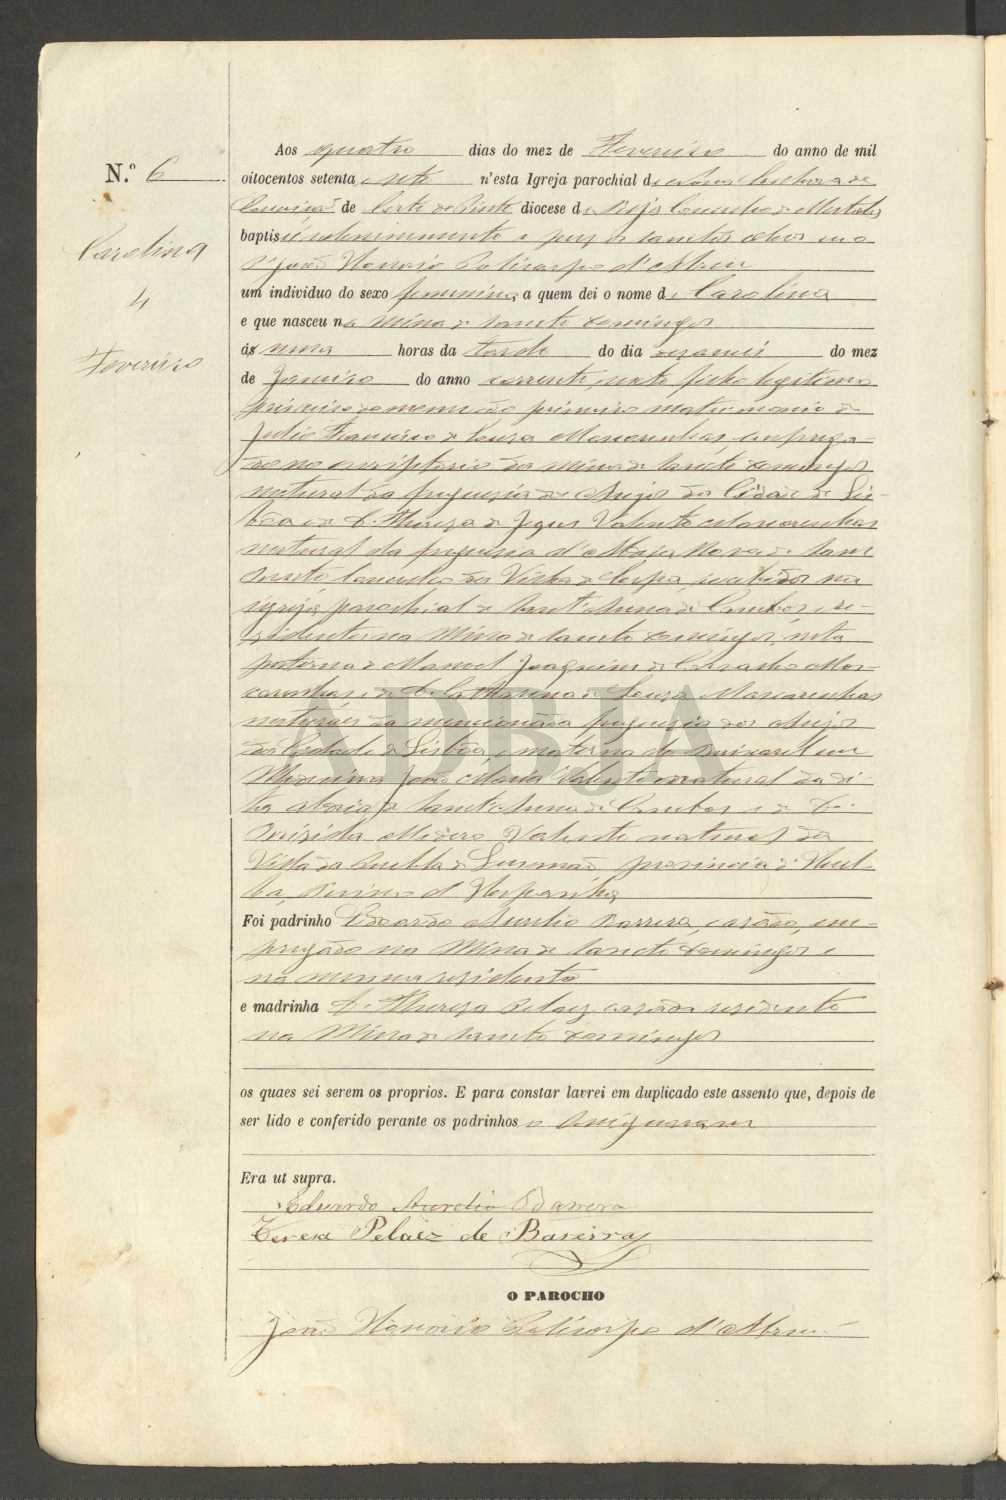 N.º 6
Carolina
4
Fevereiro
Aos quatro dias do mez de Fevereiro do anno de mil
oitocentos setenta e sete n'esta Igreja parochial de Nossa Senhora da
Conceição de Corte do Pinto diocese de Beja Concelho de Mertola
baptisei solemnemente e puz os sanctos oleos eu o
P.e João Honorio Policarpo d'Abreu
um individuo do sexo feminino, a quem dei o nome de Carolina
e que nasceu na Mina de Sancto Domingos
ás nove horas da tarde do dia do mez
de Janeiro do anno corrente, neto filho legitimo
primeiro do nome e do primeiro matrimonio de
Julio Francisco de Souza Mascarenhas, emprega-
do no escriptorio da Mina de Sancto Domingos
natural da freguezia dos Anjos da Cidade de Lis-
bôa e de D. Thereza de Jezus Valente Mascarenhas
natural da freguezia d'Aldeia Nova de Sam
Bento, Concelho da Villa de Serpa, recebidos na
igreja parochial de Sant'Anna de Cambas, re-
zidentes na Mina de Sancto Domingos, neta
paterna de Manoel Joaquim de Mas-
carenhas e de D. Catharina de Souza Mascarenhas
naturaes da mencionada freguezia dos Anjos
da Cidade de Lisbôa, e materna do
João Maria Valente natural da di-
ta de Sanct'Anna de Cambas e de D.
Valente natural da
Villa da Puebla de Gusmão provincia d'Huel-
va, Reino d'Hespanha
Foi padrinho Eduardo Aurelio Barrera, casado, em-
pregado na Mina de Sancto Domingos e
na mesma rezidente
e madrinha D. Thereza Pelaez casada rezidente
na Mina de Sancto Domingos
os quaes sei serem os proprios. E para constar lavrei em duplicado este assento que, depois de
ser lido e conferido perante os padrinhos o assignaram
Era ut supra.
Eduardo Aurelio Barrera
Teresa Pelaez de Barrera
O PAROCHO
João Honorio Policarpo d'Abreu
ADBJA